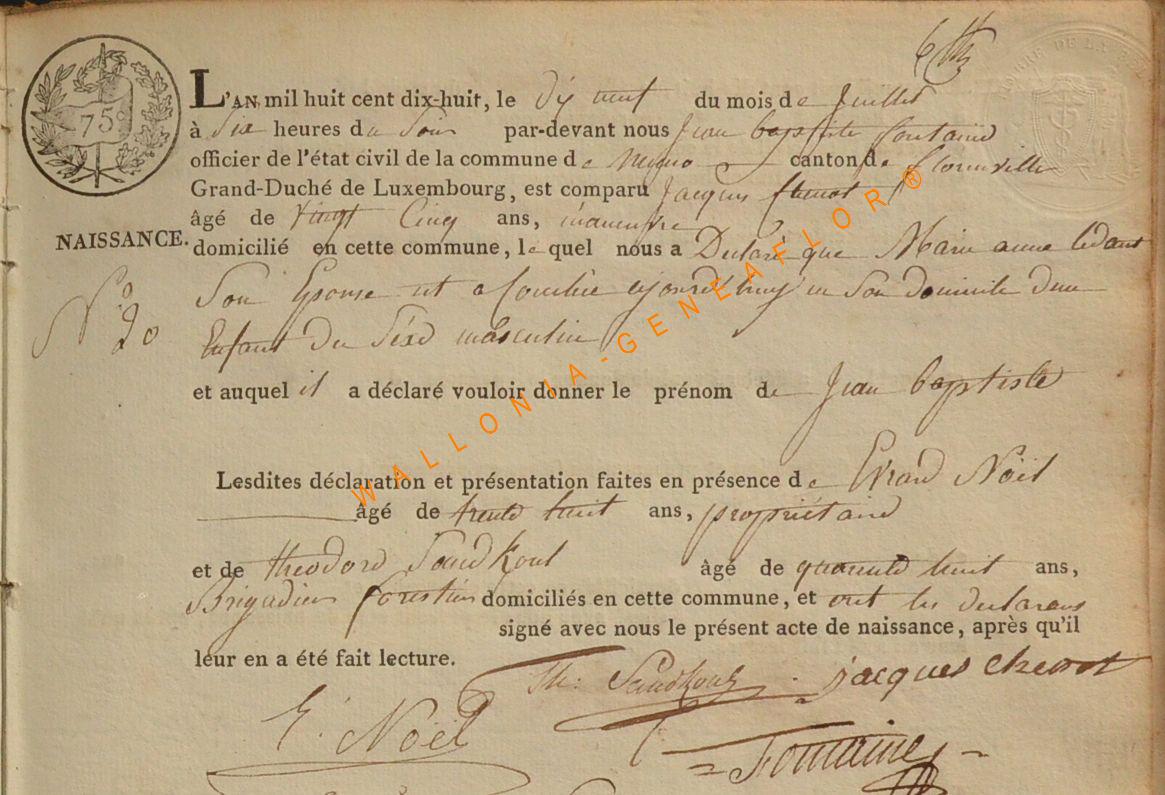 75c
L'AN mil huit cent dix-huit, le dix neuf du mois de Juillet
à Six heures du Soir par-devant nous Jean baptiste fontaine
officier de l'état civil de la commune de canton de florenville
Grand-Duché de Luxembourg, est comparu Jacques
âgé de vingt Cinq ans, manœuvre
NAISSANCE. domicilié en cette commune, lequel nous a Declaré que Marie anne ledant
Son Epouse est acouchée ajourdhuy en Son domicile d'un
No 20
Enfant du Séxe masculin
et auquel il a déclaré vouloir donner le prénom de Jean baptiste
Lesdites déclaration et présentation faites en présence de Evrard Noël
âgé de trente huit ans, propriétaire
et de theodore Sandkoul âgé de quarante huit ans,
Brigadier forestier domiciliés en cette commune, et ont les declarans
signé avec nous le présent acte de naissance, après qu'il
leur en a été fait lecture.
Th: Sandkoul jacques chenot
E. Noël
Fontaine
WALLONIA-GENEAFLOR®